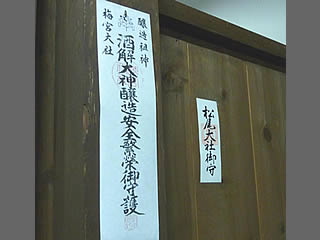 醸造祖神
酒解大神醸造安全繁榮御守護
梅宮大社
松尾大社御守